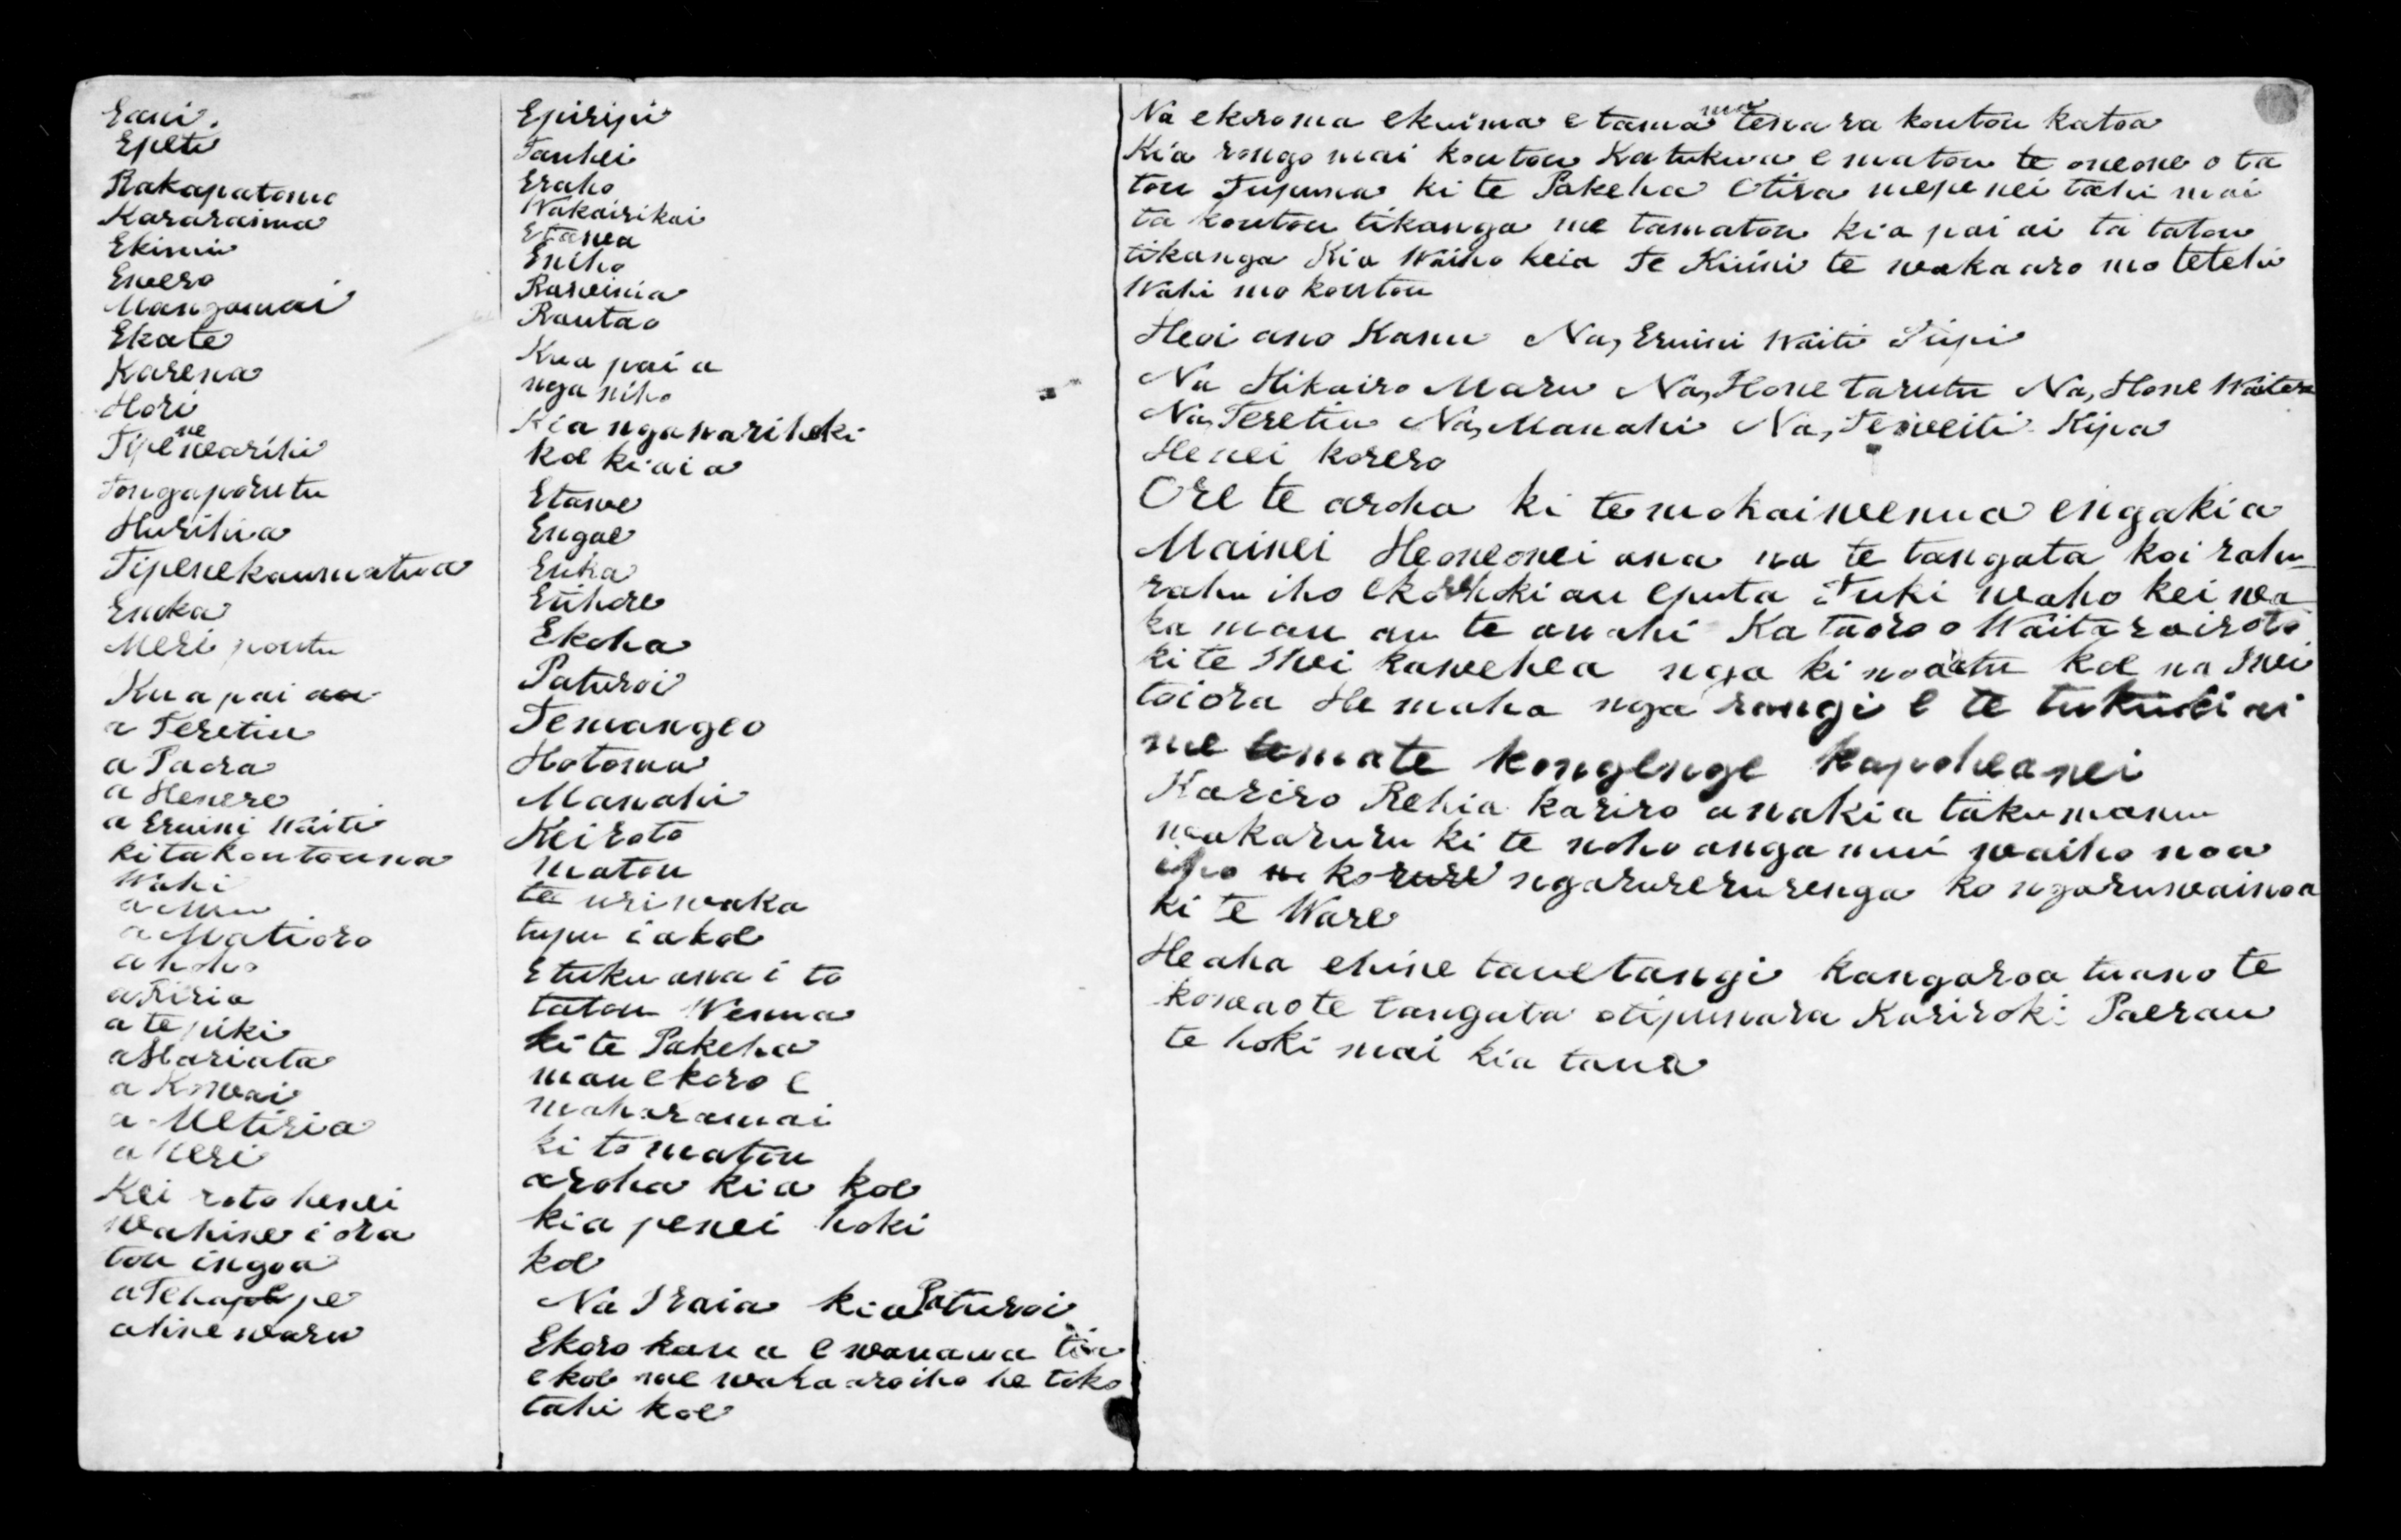 Eani.
Epete
Rakapatomo
Kararaima
Ekimi
Ewero
Mangamai
Ekate
Karena
Hori
Tipene warihi
Tongaporutu
Hurihia
Tipenekaumatua
Eneka
Meri poutu
Kua pai au
a Teretiu
a Paora
a Henere
a Eruini Waiti
ki takoutouna
Wahi
a Matioro
a hoho
a Tiria
a te piki
a Hariata
a Kowai
a Metiria
a Meri
Kei roto henei
wahine i ora
tou ingoa
a Tehapepe
a hine waru
Epiripi
Tauhei
Eraho
Wakairikai
Etawa
Eniho
Rawinia
Rautao
Kua pai a
nga niho
Kia ngawarihoki
koe kiaia
Etawe
Engae
Euha
Etihore
Ekoha
Paturoi
Temangeo
Hotoma
Manahi
Kei roto
matou
te uri waka
tupu i a koe
E tuku ana i to
tatou Wenua
ki te Pakeha
mau e koro e
maharamai
ki to matou
aroha kia koe
kia penei hoki
koe
Na Iraia kia Paturoi
Ekoro kau a e wanawa tou
e koe me wakaaroiho he toko
tahi koe
Na ekoroma ekuima e tama ma tena ra koutou katoa
Kia rongo mai koutou Katukua e matou te oneone o ta
tou Tupuna ki te Pakeha Otira mepenei tahi mai
ta koutou tikanga me tamatou kia pai ai ta tatou
tikanga Kia Waiho keia Te Kuini te wakaaro mo tetehi
Wahi mo koutou
Heoi ano Kanu Na, Eruini Waiti Tiipi
Na Hikairo Maru Na, Hone tarutu Na, Hone Waitere
Na, Teretiu Na, Manahi Na, Teweiti Kipa
Henei korero
Ore te aroha ki te mokai wenua engakia
Mainei Heoneonei ana na te tangata koi rahu
rahu iho ekore hoki au eputa i Tuki waho kei wa
ka mau au te anahi Ka Taoro o Waitara iroto
ki te Iwi kawehea nga ki noatu koe na Iwi
toiora He maha nga rangi e te tukuki ai
me te mate kongenge kapoheanei
Kariro Rehia kariro anakia taku manu
waakaruru ki te noho anga nui waiho noa
iho ko rure ngarurerurenga ko ngaruwainoa
ki te Ware
Heaha ehine tauetangi kangaroa tuano te
koweaote tangata otipunara Kariroki Paerau
te hoki mai kia taua